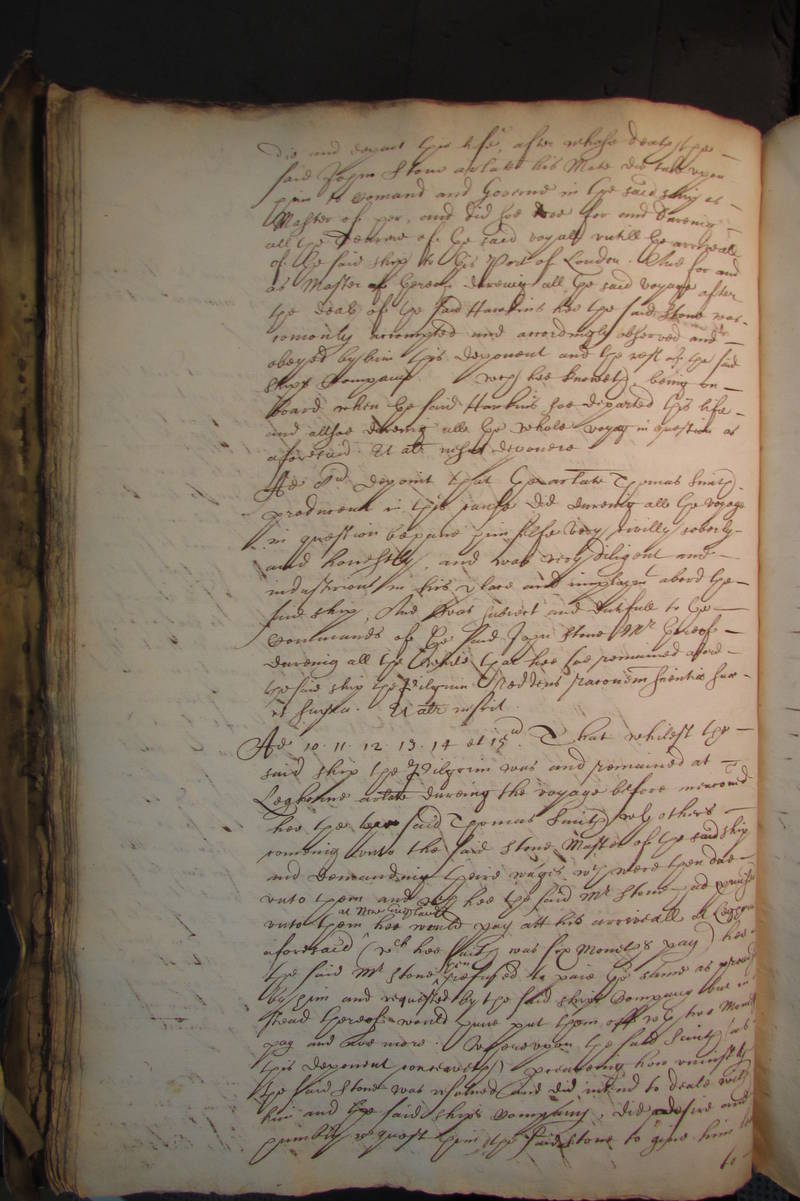 die and depart this life, after whose death the
said John Stone arlate his Mate did take upon
him to Comand and Governe in the said ship as
Master of her, and did soe doe for and dureing
all the tearme of the said voyage untill the arriveall
of the said ship to this Port of London. And for and
as Master thereof dureing all the said voyage after
the death of the said Hawkins hee the said Stone was
comonly accompted and accordingly observed and
obeyed by him this deponent and the rest of the said
ships Company. wch hee knoweth being on
board when the said Hawkins soe departed this life
and allsoe dureing alle the whole voyage in question as
aforesaid. Et aliter nescit deponere
Ad deponit that the arlate Thomas Smith
producent in this cause did dureing alle the voyage
in question behave himselfe very civilly soberly
and honestly, and was very diligent and
industrious in his place and imployment aboard the
said ship, And was and dutifull to the
Commands of the said John Stone Mr thereof
dureing all the tyme that hee soe remained aboard
the said ship the Pilgrim Reddens racionem scientiæ suæ
ut supra. Et aliter nescit.
Ad 10. 11. 12 13. 14 et 15 That whilest the
said ship the Pilgrim was and remained at
Leghorne arlate dureing the voyage before menconed
hee the said Thomas Smith wth others
comeing unto the said Stone Master of the said ship
and demanding theire wages wch were then due
unto them and wch hee the said Mr Stone had promised
at New England
unto them hee would pay att his arriveall at Leghorne
aforesaid (wch hee saith was six Moneths pay) hee
then
the said Mr Stone refused to paie the same as
by him and requested by the said ships Company but in
stead thereof would have put them off with two Moneths
pay and noe more. Whereupon the said Smith as
this deponent conceiveth perceiving how
the said Stone was and did intend to deale with
him and the said ships Company, did desire and
humbly request him the said Stone to give him
to